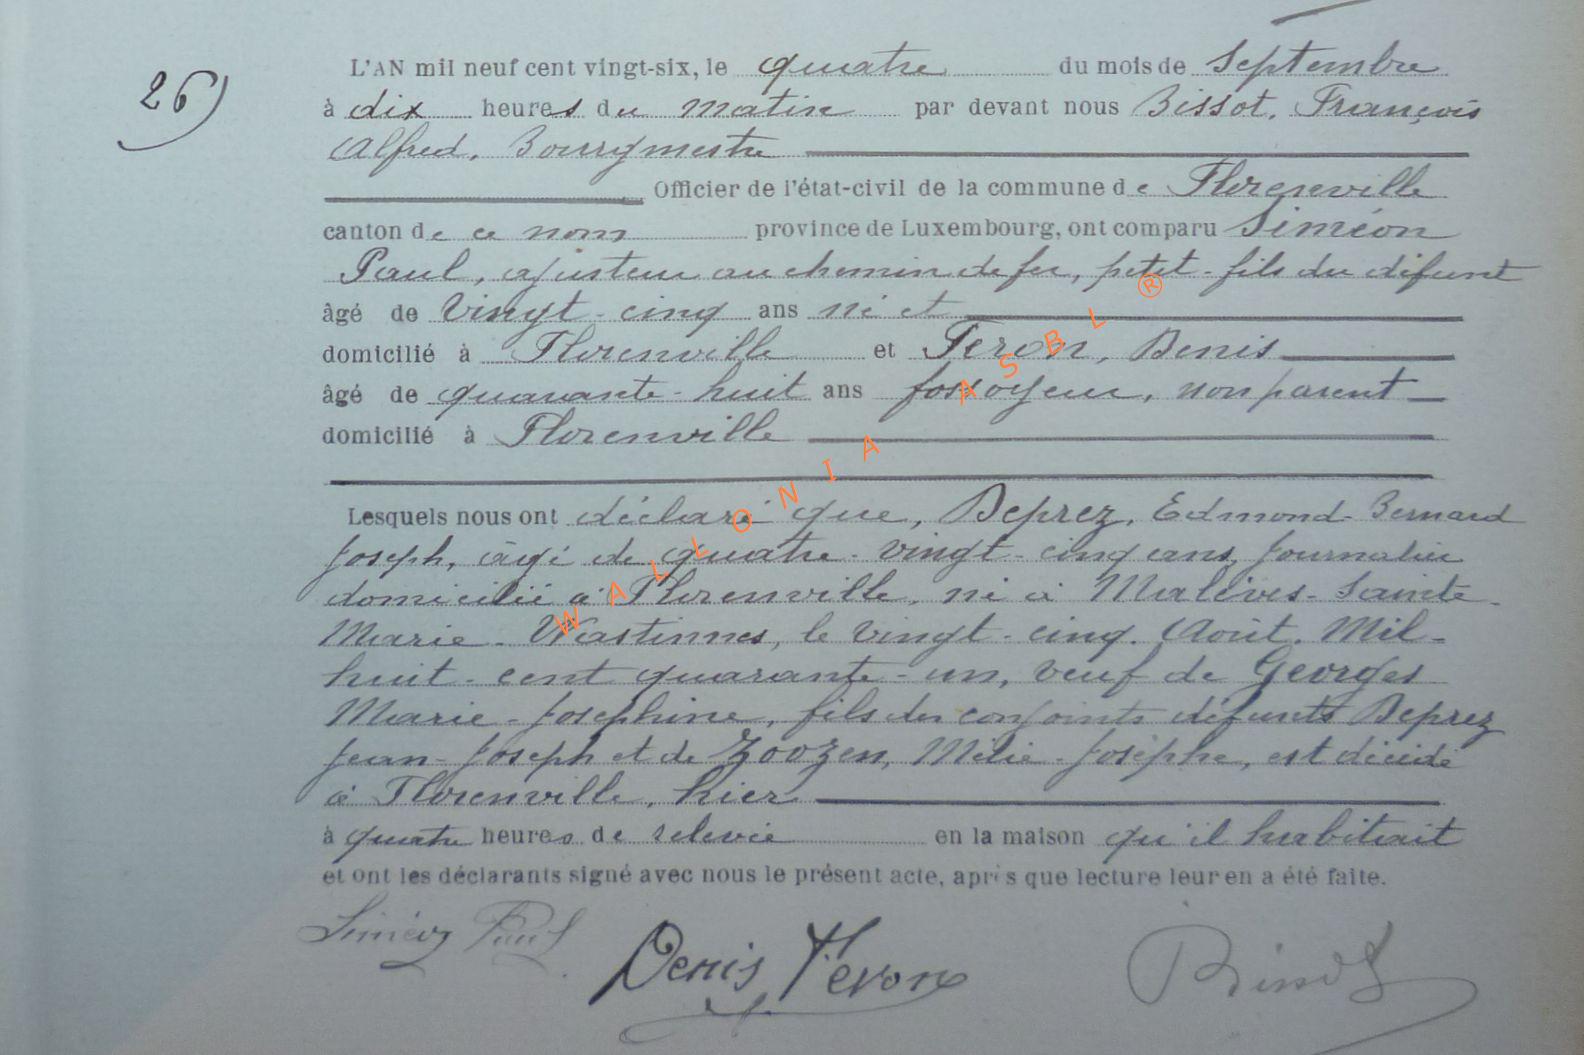 26)
L'AN mil neuf cent vingt-six, le quatre du mois de Septembre
à dix heures du matin par devant nous Bissot, François
Alfred, Bourgmestre
Officier de l'état-civil de la commune de Florenville
canton de ce nom province de Luxembourg, ont comparu Siméon
Paul, ajusteur au chemin de fer, petit-fils du défunt
âgé de vingt-cinq ans né et
domicilié à Florenville et Feron, Denis
âgé de quarante-huit ans fossoyeur, non parent
domicilié à Florenville
Lesquels nous ont déclaré que, Deprez, Edmond-Bernard
Joseph, âgé de quatre-vingt-cinq ans, journalier
domicilié à Florenville, né à Malèves-Sainte-
Marie-Wastinnes, le vingt-cinq Août Mil-
huit-cent quarante-un, veuf de Georges
Marie-Joséphine, fils des conjoints défunts Deprez
Jean-Joseph et de Zoozen, Mélie-Josèphe, est décédé
à Florenville, hier
à quatre heures de relevée en la maison qu'il habitait
et ont les déclarants signé avec nous le présent acte, après que lecture leur en a été faite.
Siméon Paul Denis Feron Bissot
WALLONIA ASBL ®